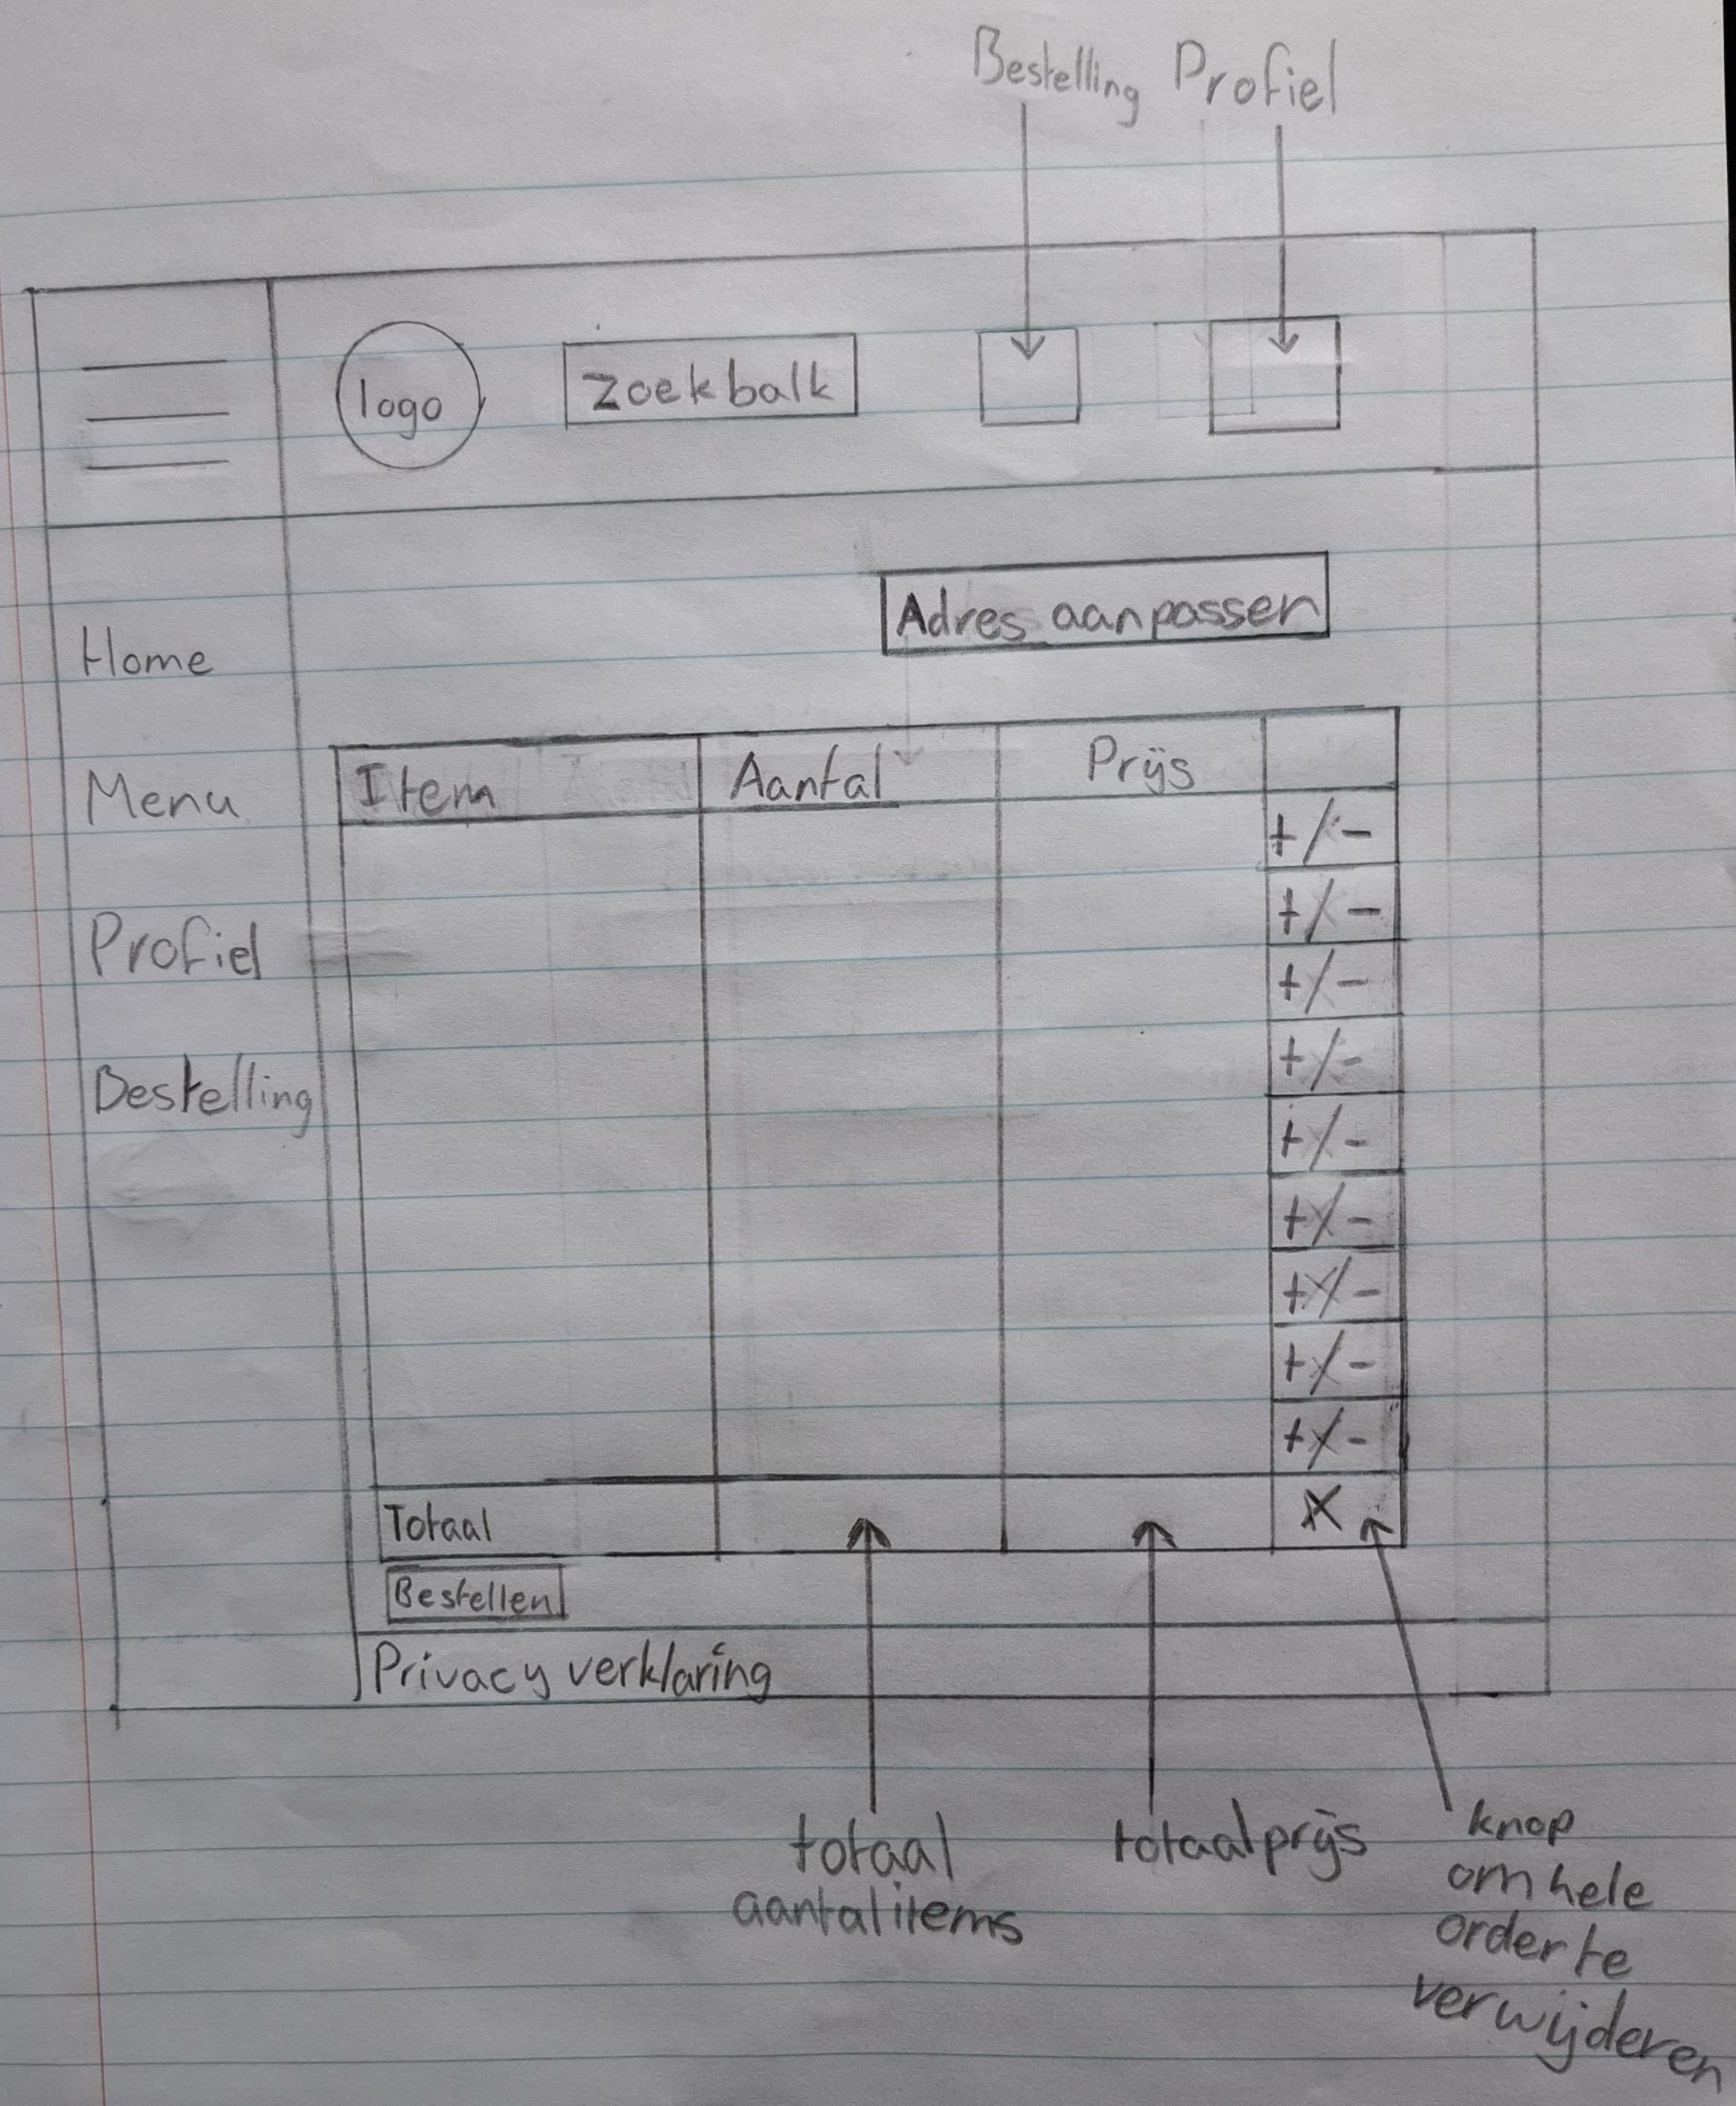 Bestelling Profiel
logo
Zoekbalk
Adres aanpassen
Home
Menu
Profiel
Bestelling
Item Aantal Prijs
+/-
+/-
+/-
+/-
+/-
+/-
+/-
+/-
+/-
Totaal X
Bestellen
Privacy verklaring
totaal
aantal items
totaalprijs
knop
om hele
order te
verwijderen